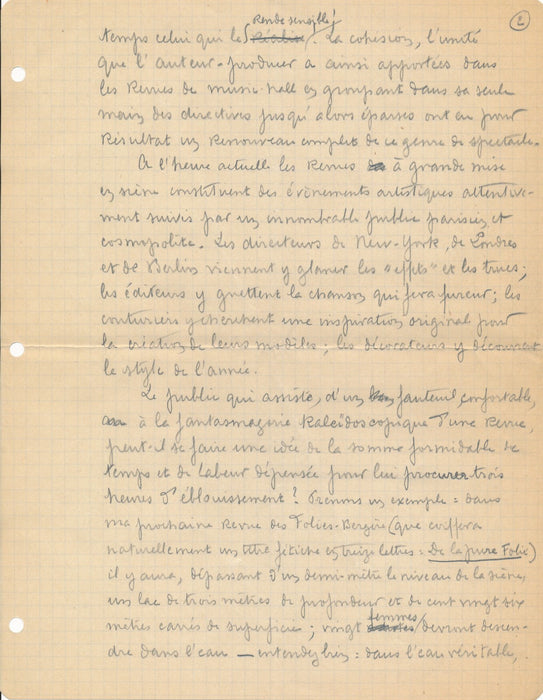 2
rende sensible
temps celui qui le réalise. La cohésion, l'unité
que l'auteur-producer a ainsi apportées dans
les Revues de music-hall en groupant dans sa seule
main des directives jusqu'alors éparses ont eu pour
résultat un renouveau complet de ce genre de spectacle.
A l'heure actuelle les Revues à grande mise
en scène constituent des évènements artistiques attentive-
ment suivis par un innombrable public parisien et
cosmopolite. Les directeurs de New-York, de Londres
et de Berlin viennent y glaner les "effets" et les trucs;
les éditeurs y guettent la chanson qui fera fureur; les
couturiers y cherchent une inspiration original pour
la création de leurs modèles; les décorateurs y découvrent
le style de l'année.
Le public qui assiste, d'un fauteuil confortable,
à la fantasmagorie kaleïdoscopique d'une Revue,
peut-il se faire une idée de la somme formidable de
temps et de labeur dépensée pour lui procurer trois
heures d'éblouissement? Prenons un exemple: dans
ma prochaine Revue des Folies-Bergère (que coiffera
naturellement un titre fétiche en treize lettres: De la pure Folie)
il y aura, dépassant d'un demi-mètre le niveau de la scène,
un lac de trois mètres de profondeur et de cent vingt six
mètres carrés de superficie; vingt femmes devront descen-
dre dans l'eau — entendez bien: dans l'eau véritable,